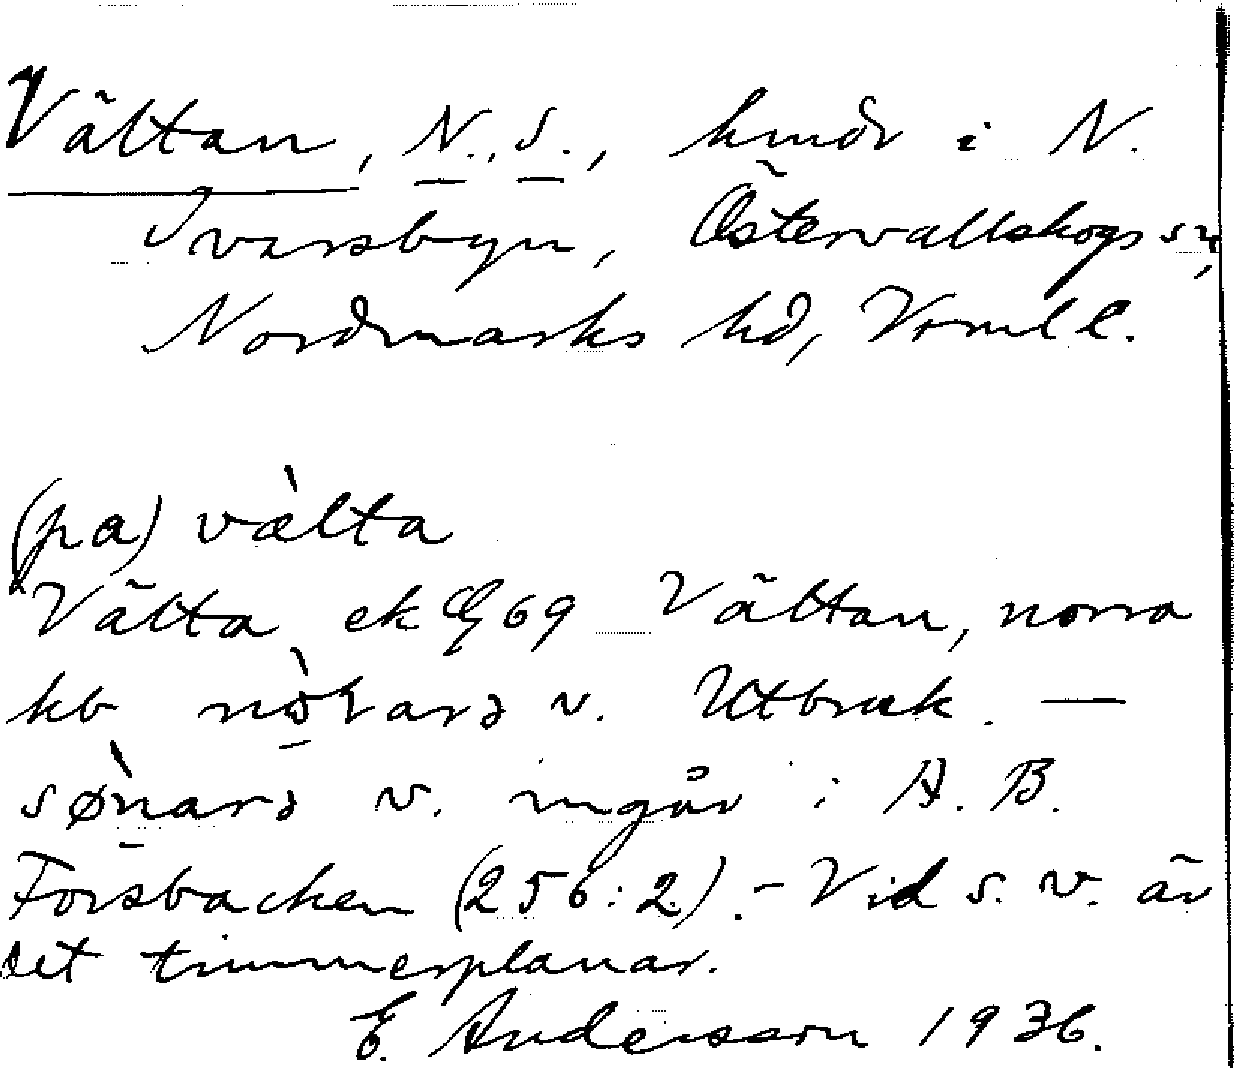 Vältan, N., S., hmdr i N.
Ivarsbyn, Östervallskogs sn,
Nordmarks hd, Vrml l.
(pa) vælta
Välta ek 69 Vältan, norra
kb v. Utbruk. —
v. ingår i A. B.
Forsbacken (256:2). – Vid s. v. är
det timmerplanar.
E. Andersson 1936.